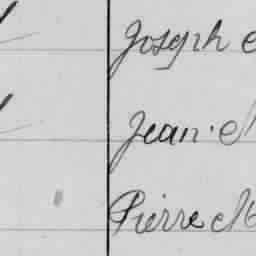 Joseph
Jean
Pierre